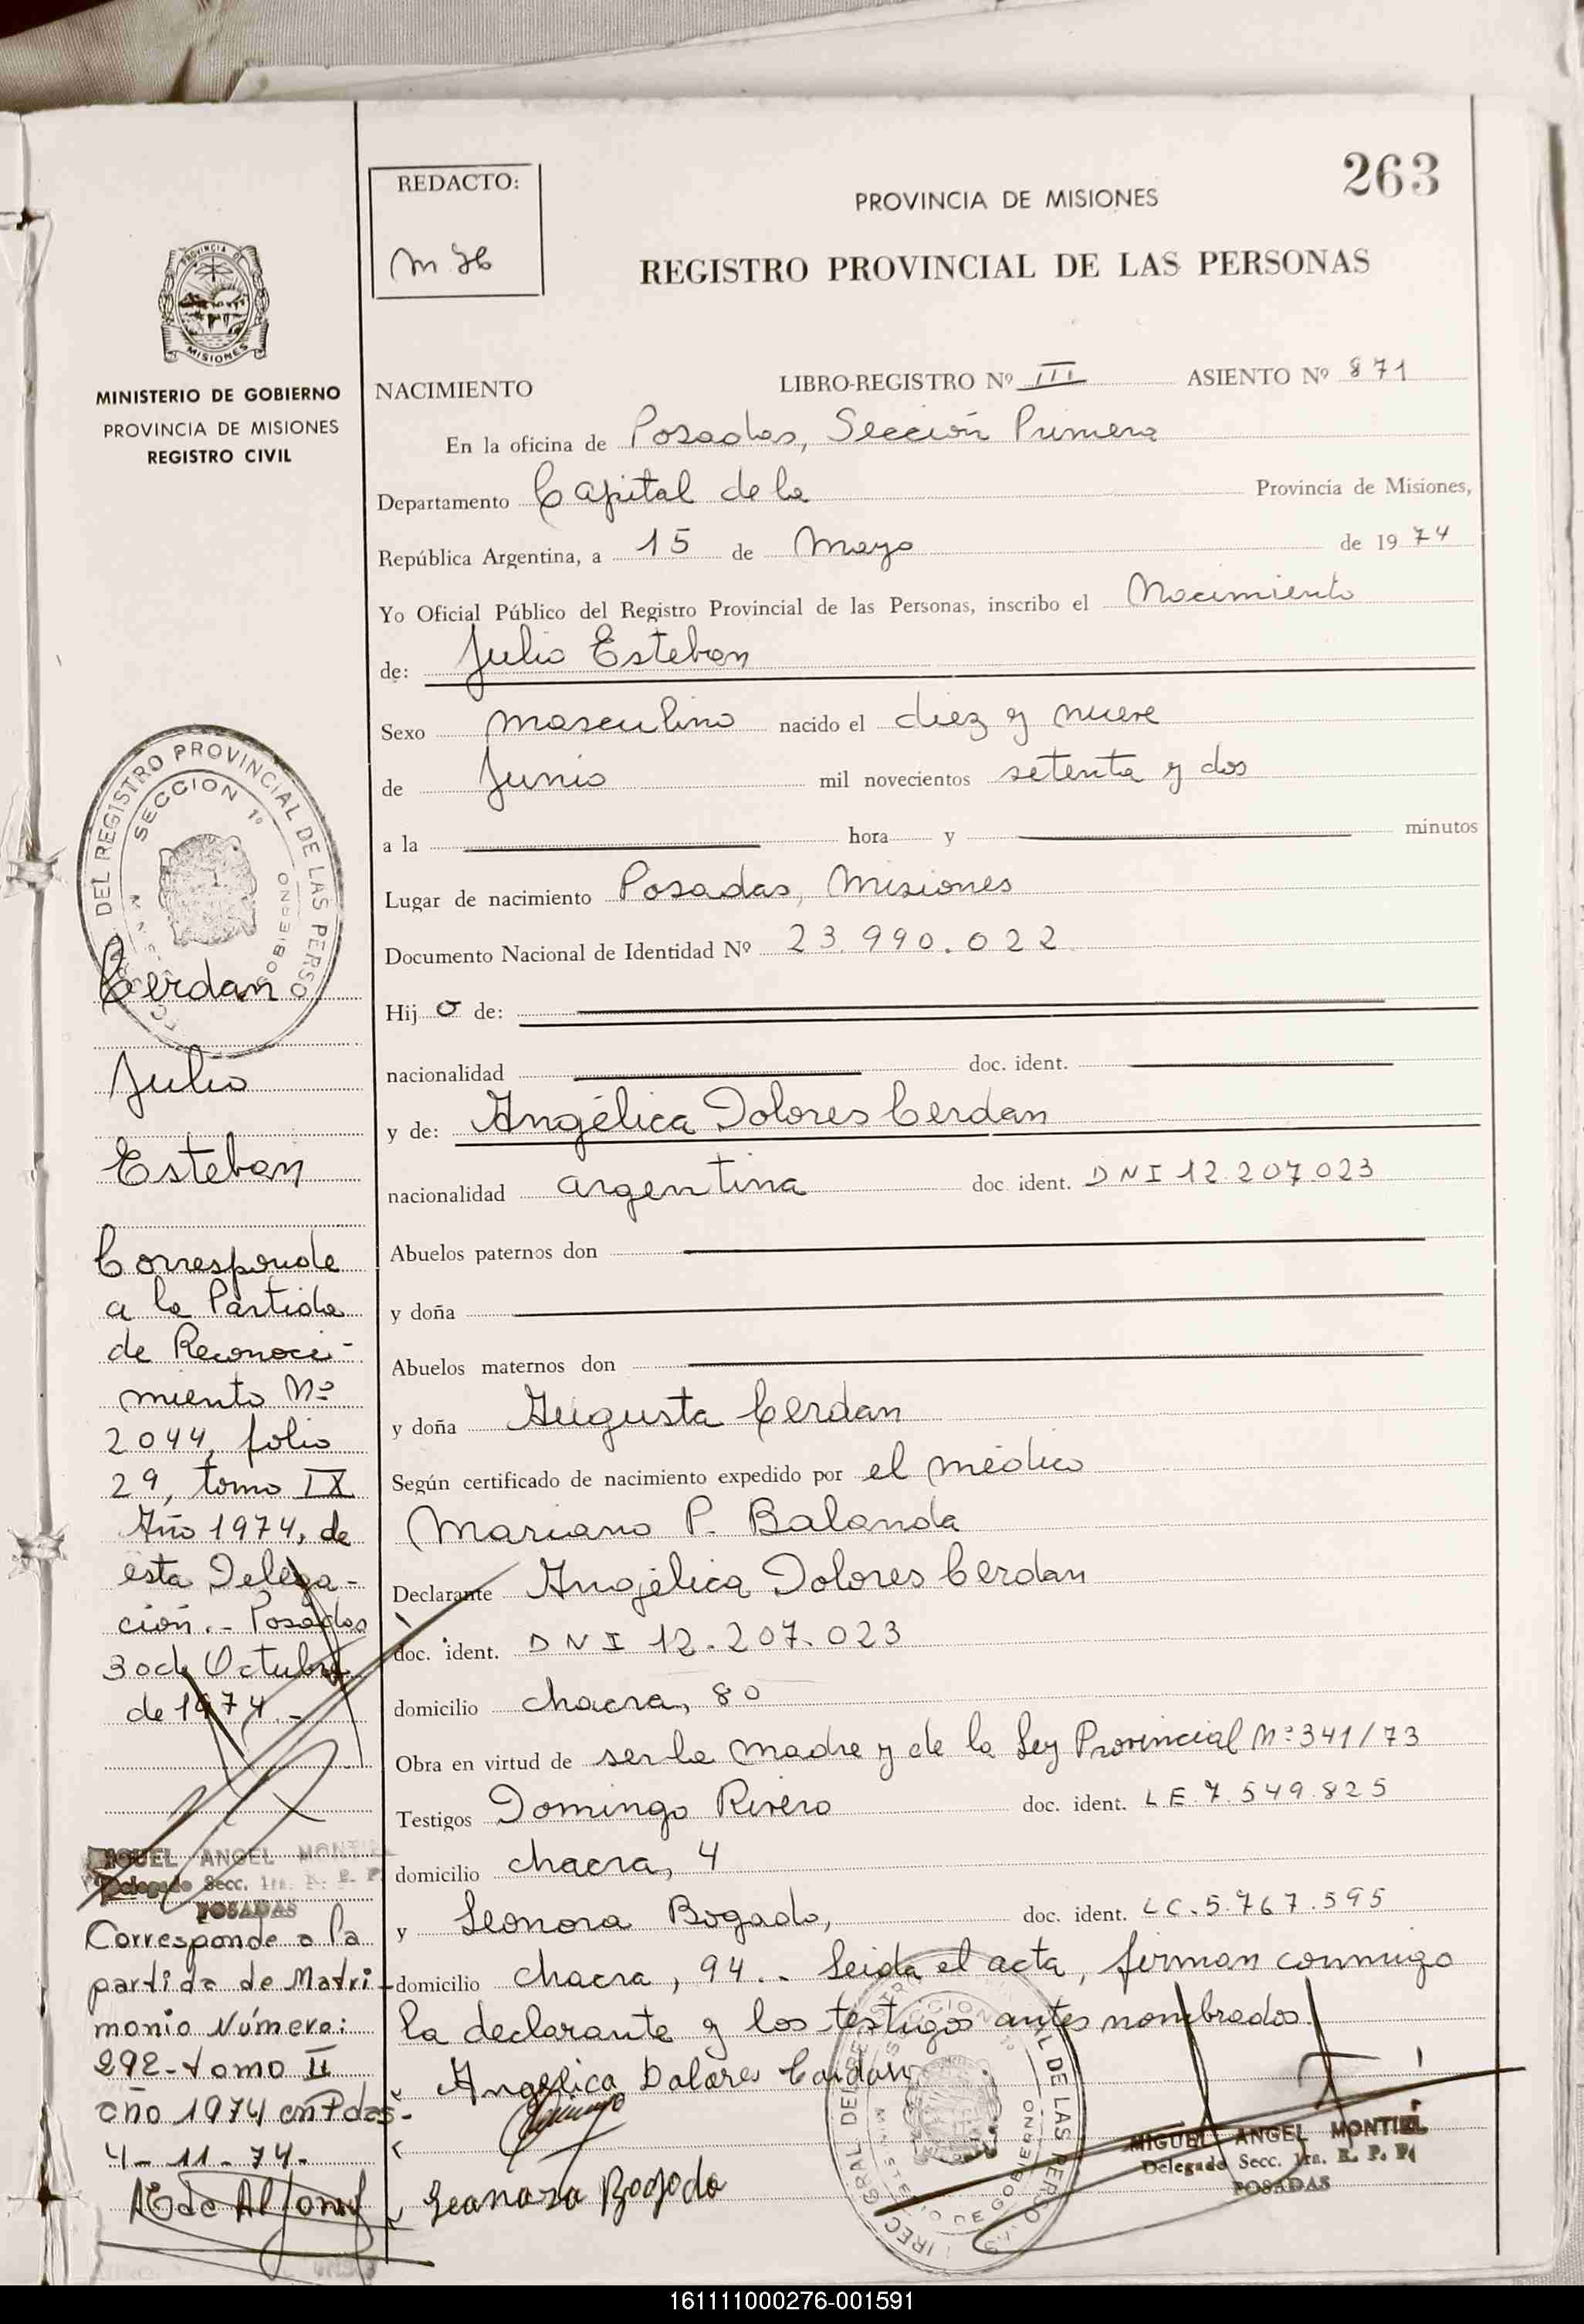 263
REDACTO:
PROVINCIA DE MISIONES
REGISTRO PROVINCIAL DE LAS PERSONAS
PROVINCIA
MISIONES
MINISTERIO DE GOBIERNO
PROVINCIA DE MISIONES
REGISTRO CIVIL
NACIMIENTO LIBRO-REGISTRO Nº III ASIENTO Nº 871
En la oficina de Posadas, Sección Primera
Departamento Capital de la Provincia de Misiones,
República Argentina, a 15 de Mayo de 1974
Yo Oficial Público del Registro Provincial de las Personas, inscribo el Nacimiento
de: Julio Esteban
Sexo masculino nacido el diez y nueve
de Junio mil novecientos setenta y dos
a la hora y minutos
Lugar de nacimiento Posadas, Misiones
Documento Nacional de Identidad Nº 23.990.022
Hijo de:
nacionalidad doc. ident.
y de: Angélica Dolores Cerdan
nacionalidad argentina doc. ident. DNI 12.207.023
Abuelos paternos don
y doña
Abuelos maternos don
y doña Augusta Cerdan
Según certificado de nacimiento expedido por el médico
Mariano P. Balanda
Declarante Angélica Dolores Cerdan
doc. ident. DNI 12.207.023
domicilio chacra, 80
Obra en virtud de ser la madre y de la Ley Provincial Nº 341/73
Testigos Domingo Rivero doc. ident. LE 7.549.825
domicilio chacra, 4
y Leonora Bogado, doc. ident. LC. 5.767.595
domicilio chacra, 94.. Leida el acta, firman conmigo
la declarante y los testigos antes nombrados.
Angelica Dolores Cerdan
Leonora Bogado
MIGUEL ANGEL MONTIEL
Delegado Secc. 1ra. R. P. P.
POSADAS
DEL REGISTRO PROVINCIAL DE LAS PERSO
SECCION 1º
GOBIERNO
Cerdan
Julio
Esteban
Corresponde
a la Partida
de Reconoci-
miento Nº
2044, folio
29, tomo IX
Año 1974, de
esta Delega-
ción.- Posadas
30 de Octubre
de 1974.-
MIGUEL ANGEL MONTIEL
Delegado Secc. 1ra. R. P. P.
POSADAS
Corresponde a la
partida de Matri-
monio Número:
292-tomo II
año 1974 en Pdas-
4-11-74.
161111000276-001591